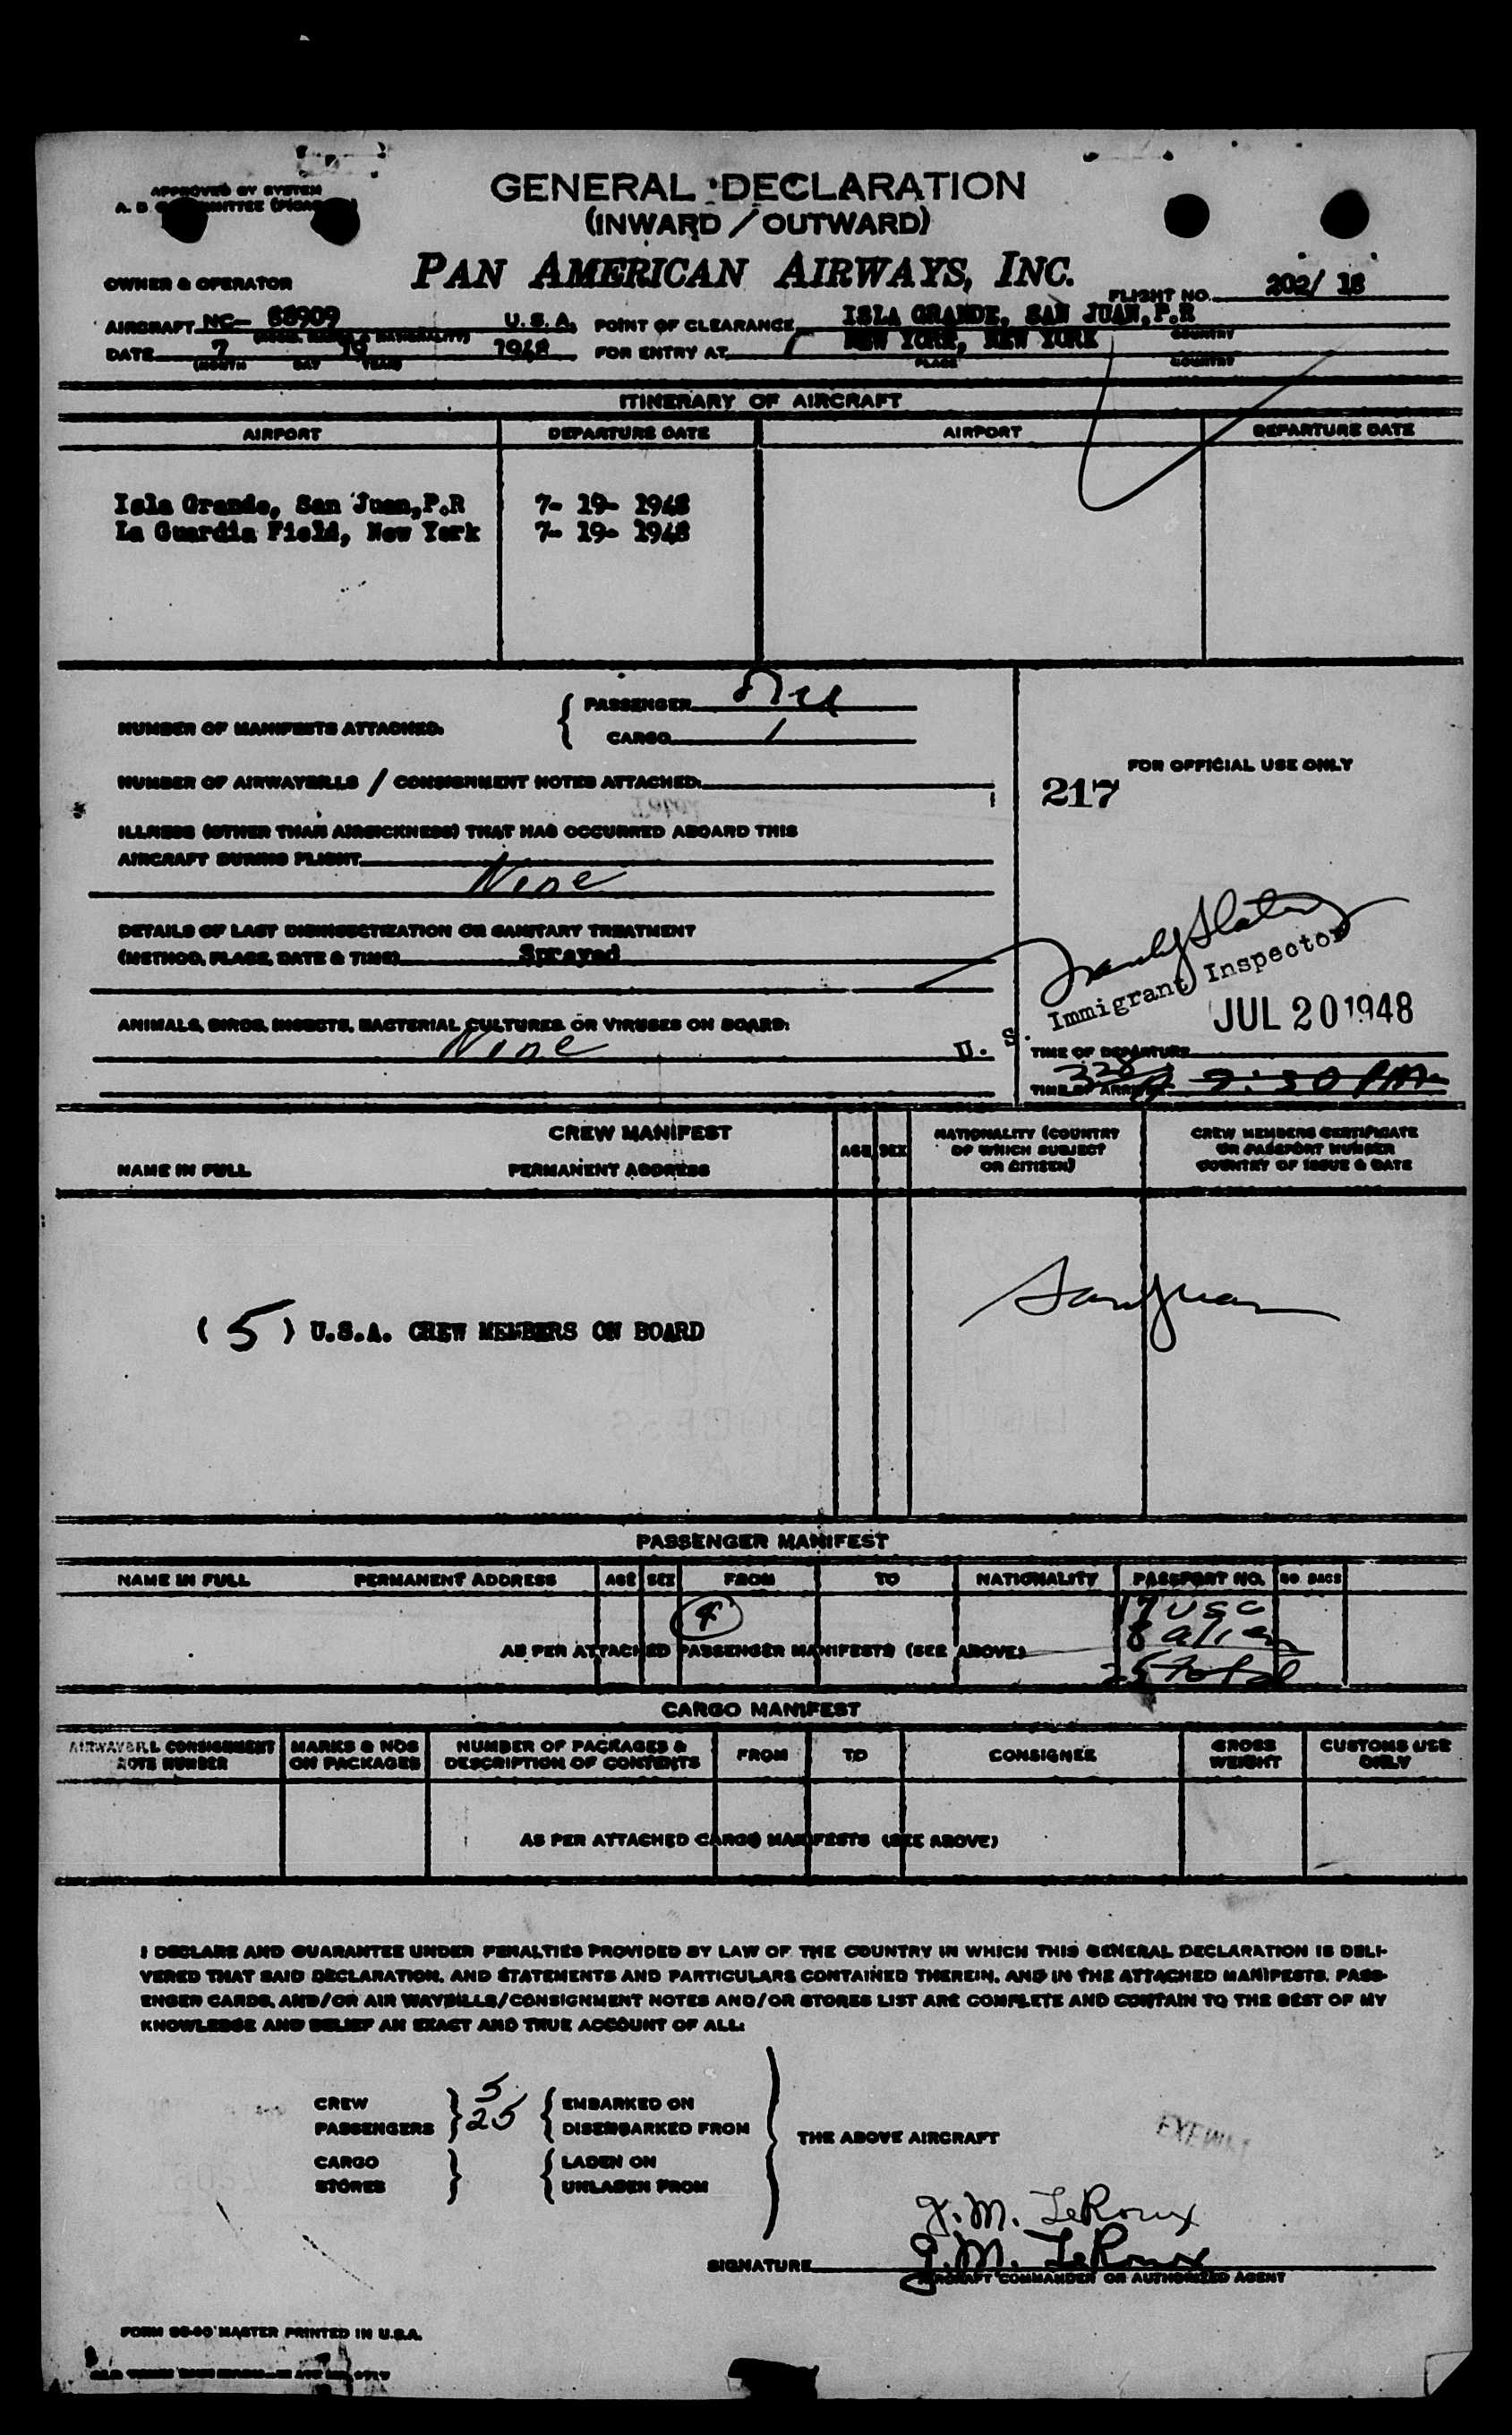 GENERAL DECLARATION
(INWARD / OUTWARD)
APPROVED BY SYSTEM
PAN AMERICAN AIRWAYS, INC.
OWNER & OPERATOR
FLIGHT NO. 202/ 18
AIRCRAFT NC- 88909 U.S.A. POINT OF CLEARANCE ISLA GRANDE, SAN JUAN, P.R
COUNTRY
DATE 7 19 1948 FOR ENTRY AT NEW YORK, NEW YORK
MONTH DAY YEAR PLACE COUNTRY
ITINERARY OF AIRCRAFT
AIRPORT DEPARTURE DATE AIRPORT DEPARTURE DATE
Isla Grande, San Juan,P.R 7- 19- 1948
La Guardia Field, New York 7- 19- 1948
NUMBER OF MANIFESTS ATTACHED. { PASSENGER
CARGO 1
FOR OFFICIAL USE ONLY
NUMBER OF AIRWAYBILLS / CONSIGNMENT NOTES ATTACHED.
217
ILLNESS (OTHER THAN AIRSICKNESS) THAT HAS OCCURRED ABOARD THIS
AIRCRAFT DURING FLIGHT
None
DETAILS OF LAST DISINSECTIZATION OR SANITARY TREATMENT
(METHOD, PLACE, DATE & TIME) Sprayed
U. S. Immigrant Inspector
JUL 20 1948
ANIMALS, BIRDS, INSECTS, BACTERIAL CULTURES OR VIRUSES ON BOARD:
None
TIME OF DEPARTURE
TIME OF ARRIVAL 9:30 PM
CREW MANIFEST
NAME IN FULL PERMANENT ADDRESS AGE SEX NATIONALITY (COUNTRY OF WHICH SUBJECT OR CITIZEN) CREW MEMBERS CERTIFICATE OR PASSPORT NUMBER COUNTRY OF ISSUE & DATE
San Juan
( 5 ) U.S.A. CREW MEMBERS ON BOARD
PASSENGER MANIFEST
NAME IN FULL PERMANENT ADDRESS AGE SEX FROM TO NATIONALITY PASSPORT NO.
17 USC
8 alien
AS PER ATTACHED PASSENGER MANIFESTS (SEE ABOVE)
25 total
CARGO MANIFEST
AIRWAYBILL CONSIGNMENT NOTE NUMBER MARKS & NOS ON PACKAGES NUMBER OF PACKAGES & DESCRIPTION OF CONTENTS FROM TO CONSIGNEE GROSS WEIGHT CUSTOMS USE ONLY
AS PER ATTACHED CARGO MANIFESTS (SEE ABOVE)
I DECLARE AND GUARANTEE UNDER PENALTIES PROVIDED BY LAW OF THE COUNTRY IN WHICH THIS GENERAL DECLARATION IS DELI-
VERED THAT SAID DECLARATION, AND STATEMENTS AND PARTICULARS CONTAINED THEREIN, AND IN THE ATTACHED MANIFESTS, PASS-
ENGER CARDS, AND/OR AIR WAYBILLS/CONSIGNMENT NOTES AND/OR STORES LIST ARE COMPLETE AND CONTAIN TO THE BEST OF MY
KNOWLEDGE AND BELIEF AN EXACT AND TRUE ACCOUNT OF ALL:
CREW } 5 { EMBARKED ON
PASSENGERS } 25 { DISEMBARKED FROM
THE ABOVE AIRCRAFT
CARGO } { LADEN ON
STORES } { UNLADEN FROM
J. M. LeRoux
SIGNATURE J. M. LeRoux
AIRCRAFT COMMANDER OR AUTHORIZED AGENT
MASTER PRINTED IN U.S.A.